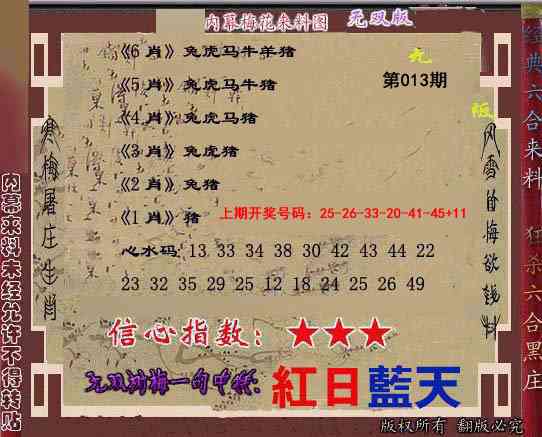 内幕梅花来料图 无双版
《6 肖》兔虎马牛羊猪
《5 肖》兔虎马牛猪
第013期
《4 肖》兔虎马猪
《3 肖》兔虎猪
《2 肖》兔猪
《1 肖》猪
上期开奖号码：25-26-33-20-41-45+11
心水码: 13 33 34 38 30 42 43 44 22
23 32 35 29 25 12 18 24 25 26 49
信心指数：★★★
一句中特：紅日藍天
版权所有 翻版必究
内幕来料未经允许不得转贴
寒梅屠庄生肖
经典六合来料 狂杀六合黑庄